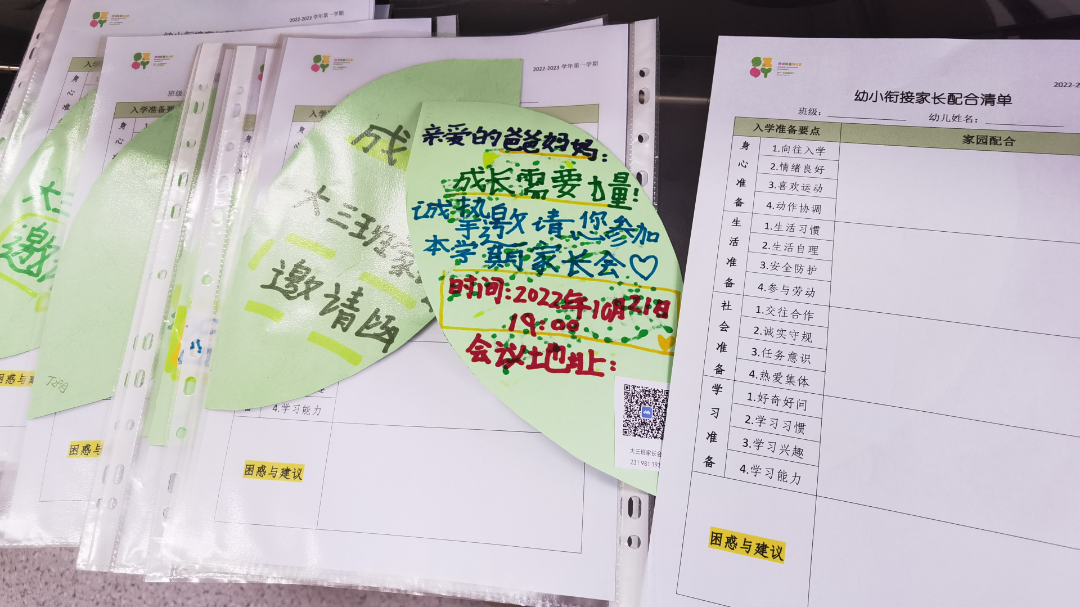 2022-2023 学年第一学期
入学
身
心
邀
困惑与建议
班级
入学准备要点
困惑与建议
2022-2023 学年第一学期
成
大三班家
邀请函
4.学习能力
困惑与建议
亲爱的爸爸妈妈：
成长需要力量!
诚挚邀请您参加
本学期家长会♡
时间:2022年10月21日
19:00
会议地址:
大三班家长会
幼小衔接家长配合清单
班级： 幼儿姓名：
入学准备要点 家园配合
身心准备
1.向往入学
2.情绪良好
3.喜欢运动
4.动作协调
生活准备
1.生活习惯
2.生活自理
3.安全防护
4.参与劳动
社会准备
1.交往合作
2.诚实守规
3.任务意识
4.热爱集体
学习准备
1.好奇好问
2.学习习惯
3.学习兴趣
4.学习能力
困惑与建议